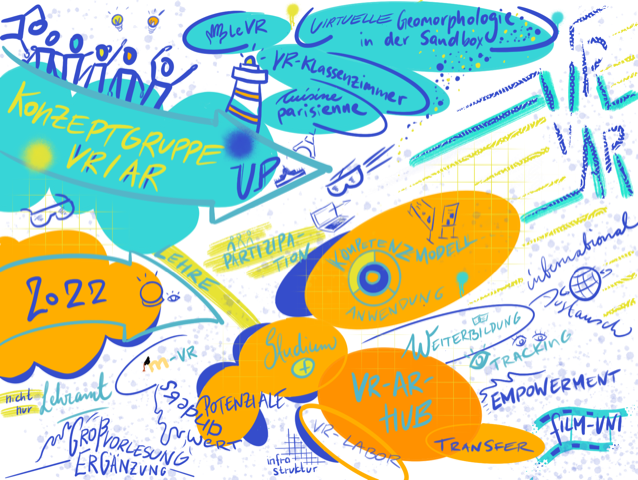 mleVR
VIRTUELLE Geomorphologie
in der Sandbox
VR-Klassenzimmer
cuisine
parisienne
KONZEPTGRUPPE
VR/AR
UP
2022
LEHRE
PARTIZIPA-
TION
KOMPETENZ
MODELL
ANWENDUNG
international
Austausch
WEITERBILDUNG
TRACKING
Studium
m-VR
nicht
nur
Lehramt
POTENZIALE
VR-AR-
HUB
EMPOWERMENT
FILM-UNI
GROßVORLESUNG
ERGÄNZUNG
WERT
VR-LABOR
TRANSFER
infra
struktur